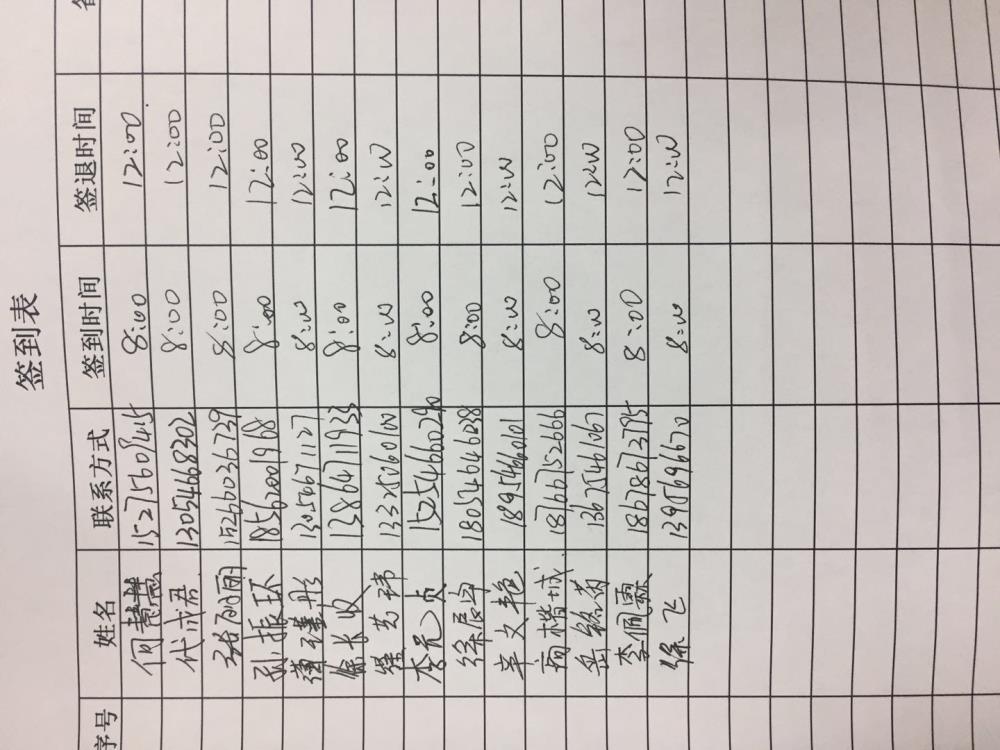 签到表
序号 姓名 联系方式 签到时间 签退时间
何慧慧 15275609415 8:00 12:00
代成君 13054668302 8:00 12:00
张丽丽 15266036739 8:00 12:00
孙振环 18562001968 8:00 12:00
13056671127 8:00 12:00
徐长收 13864711933 8:00 12:00
徐艺祎 13325060100 8:00 12:00
李元贞 15254660290 8:00 12:00
徐辰宇 18054646038 8:00 12:00
辛文艳 18954660101 8:00 12:00
18766752666 8:00 12:00
13675461067 8:00 12:00
李佩霖 18678673795 8:00 12:00
徐飞 1395696670 8:00 12:00